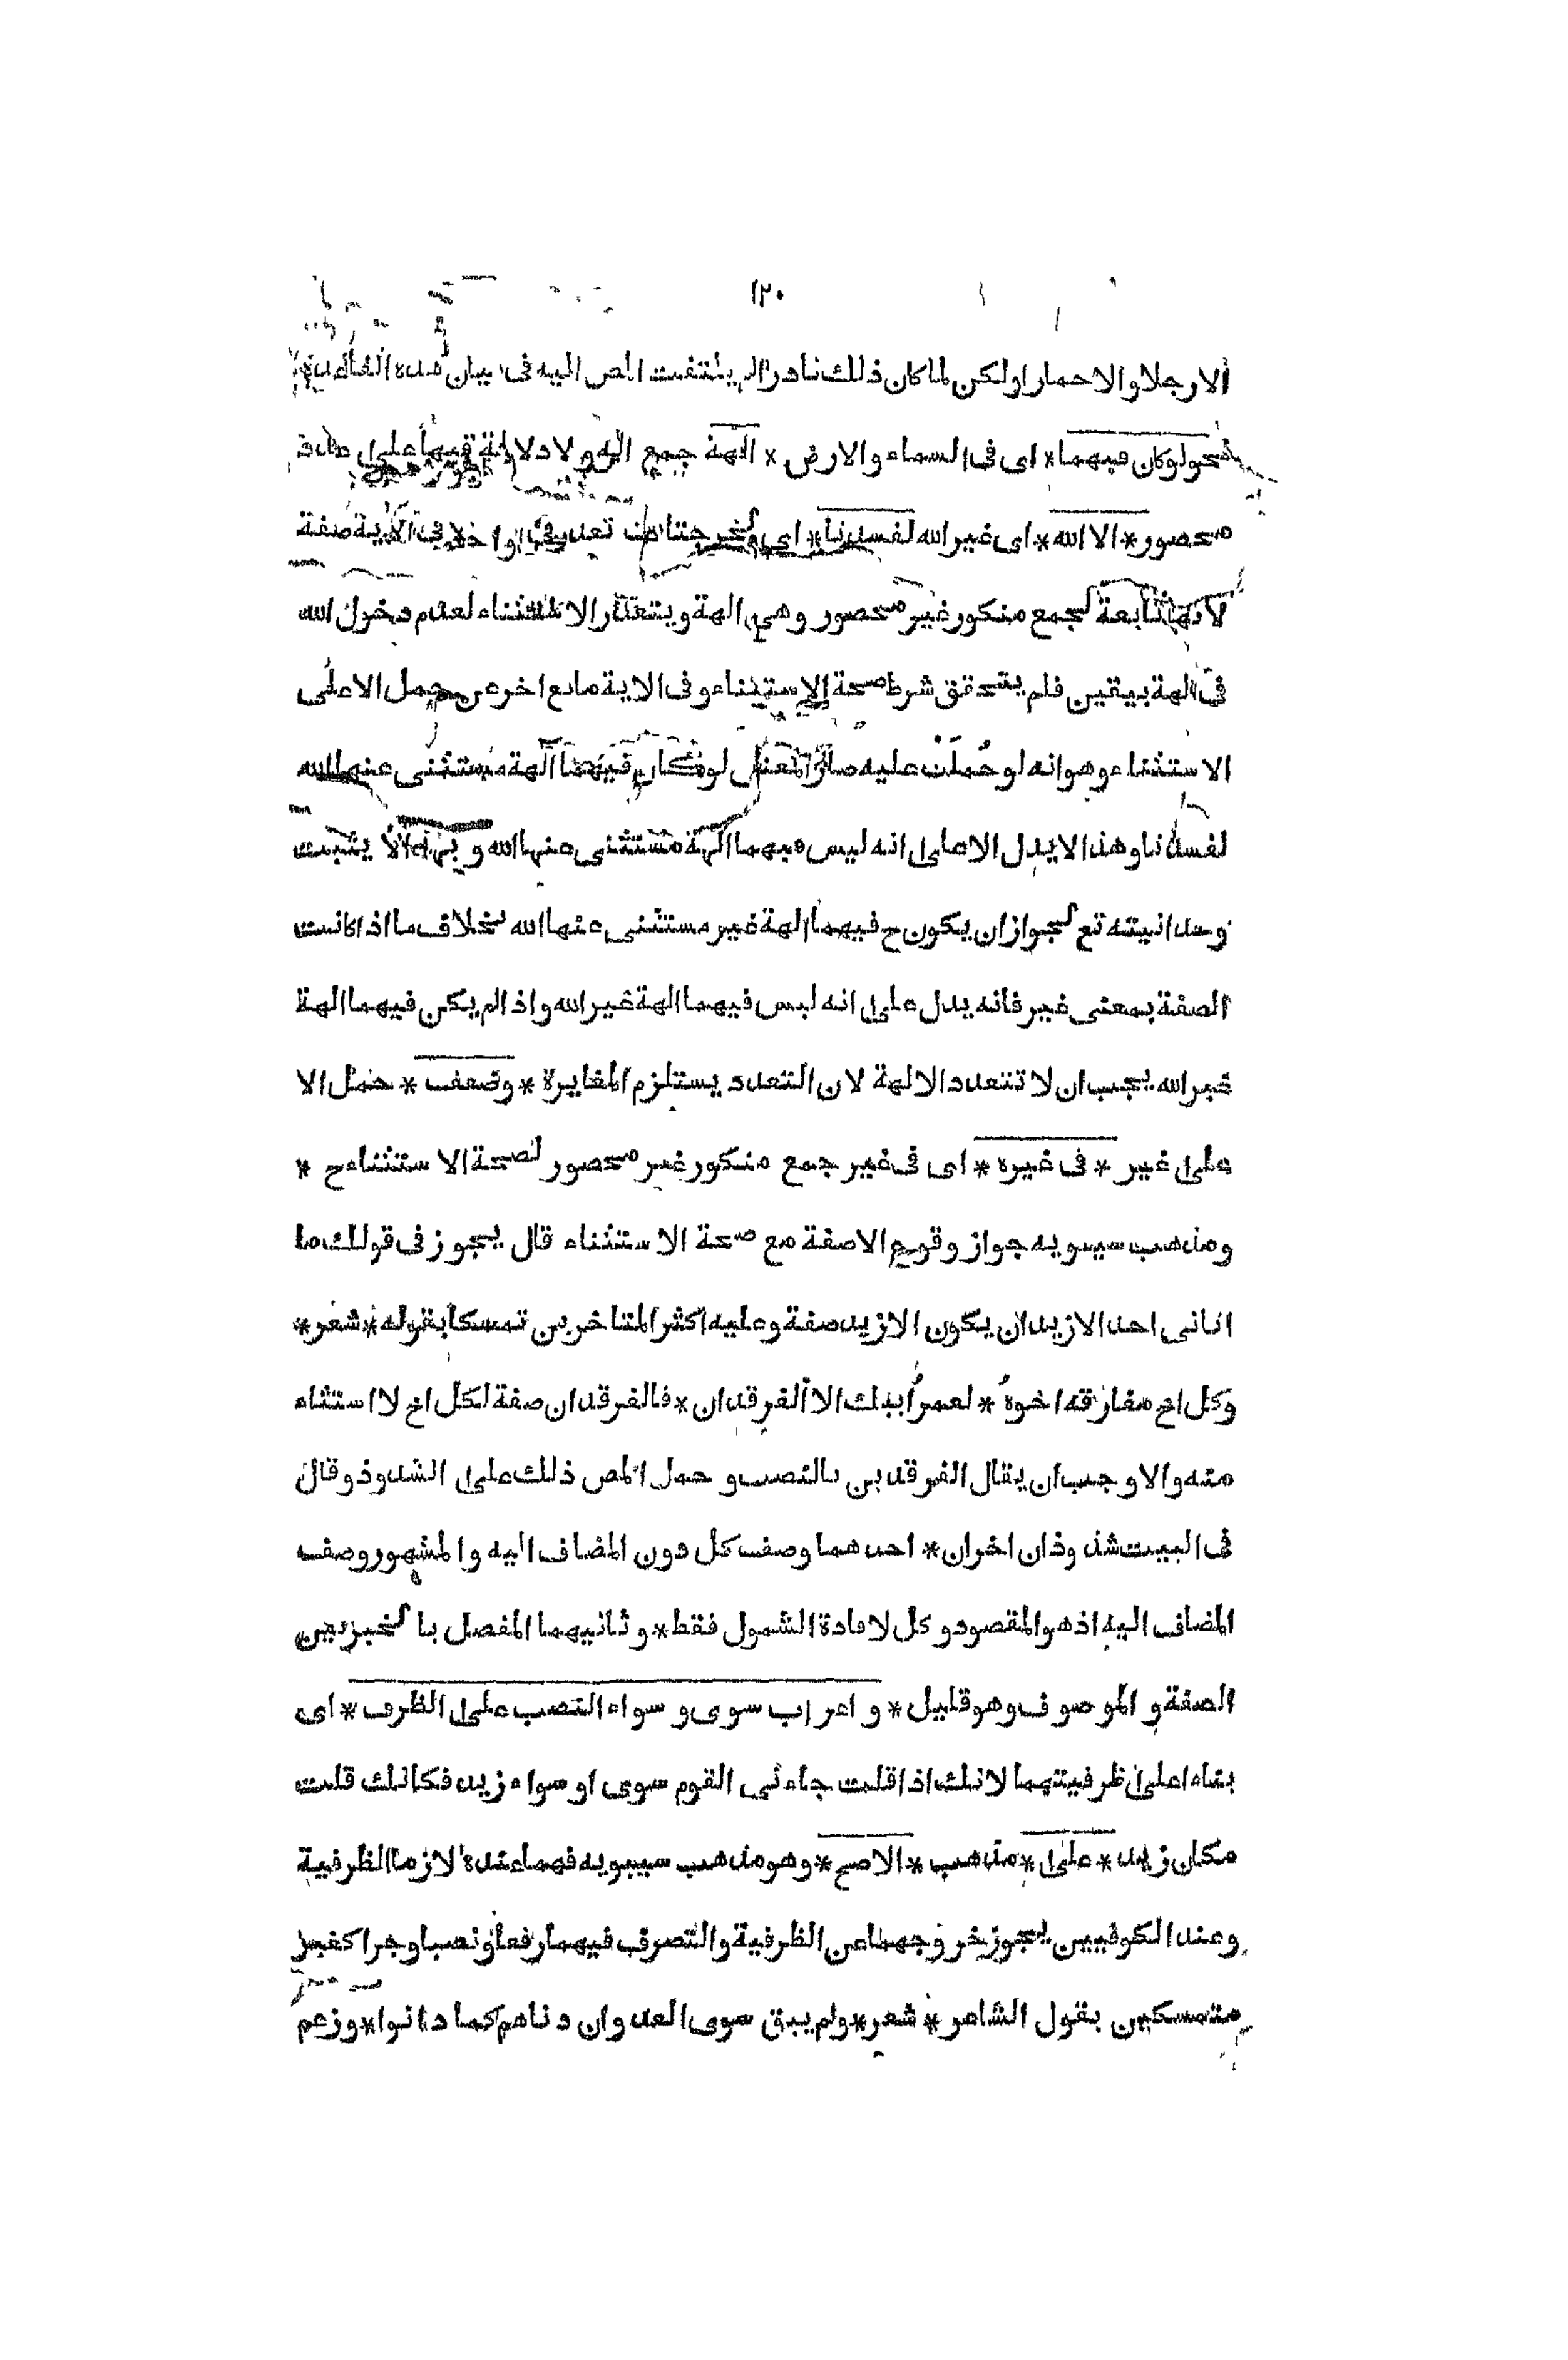 ١٢٠
الا رجلا والا حمارا ولكن لما كان ذلك نادرا لم يلتفت المص اليه فى بيان هذه القاعدة
نحو لو كان فيهما * اى فى السماء والارض * الهة جمع اله ولا دلالة فيها على عدد
محصور * الا الله * اى غير الله لفسدتا * اى لخرجتا عن تعدد فالا فى الآية صفة
لانها تابعة لجمع منكور غير محصور وهى الهة ويتعذر الاستثناء لعدم دخول الله
فى الهة بيقين فلم يتحقق شرط صحة الاستثناء وفى الاية مانع اخر عن حمل الا على
الاستثناء وهو انه لو حُملَتْ عليه صار المعنى لو كان فيهما آلهة مستثنى عنها الله
لفسدتا وهذا لا يدل الا على انه ليس فيهما الهة مستثنى عنها الله وبهذا لا يثبت
وحدانيته تع لجواز ان يكون ح فيهما الهة غير مستثنى عنها الله بخلاف ما اذا كانت
الصفة بمعنى غير فانه يدل على انه ليس فيهما الهة غير الله واذا لم يكن فيهما الهة
غير الله يجب ان لا تتعدد الالهة لان التعدد يستلزم المغايرة * وضعف * حمل الا
على غير * فى غيره * اى فى غير جمع منكور غير محصور لصحة الاستثناء ح *
ومذهب سيبويه جواز وقوع الا صفة مع صحة الاستثناء قال يجوز فى قولك ما
اتانى احد الا زيد ان يكون الا زيد صفة وعليه اكثر المتاخرين تمسكا بقوله * شعر *
وكل اخ مفارقه اخوهُ * لعمرُ ابيك الا الفرقدان * فالفرقدان صفة لكل اخ لا استثناء
منه والا وجب ان يقال الفرقدين بالنصب وحمل المص ذلك على الشذوذ وقال
فى البيت شذوذان اخران * احدهما وصف كل دون المضاف اليه والمشهور وصف
المضاف اليه اذ هو المقصود وكل لافادة الشمول فقط * وثانيهما الفصل بالخبر بين
الصفة والموصوف وهو قليل * واعراب سوى وسواء النصب على الظرف * اى
بناء على ظرفيتهما لانك اذا قلت جاءنى القوم سوى او سواء زيد فكانك قلت
مكان زيد * على * مذهب * الاصح * وهو مذهب سيبويه فهما عنده لازما الظرفية
وعند الكوفيين يجوز خروجهما عن الظرفية والتصرف فيهما رفعا ونصبا وجرا كغير
متمسكين بقول الشاعر * شعر * ولم يبق سوى العدوان دناهم كما دانوا * وزعم